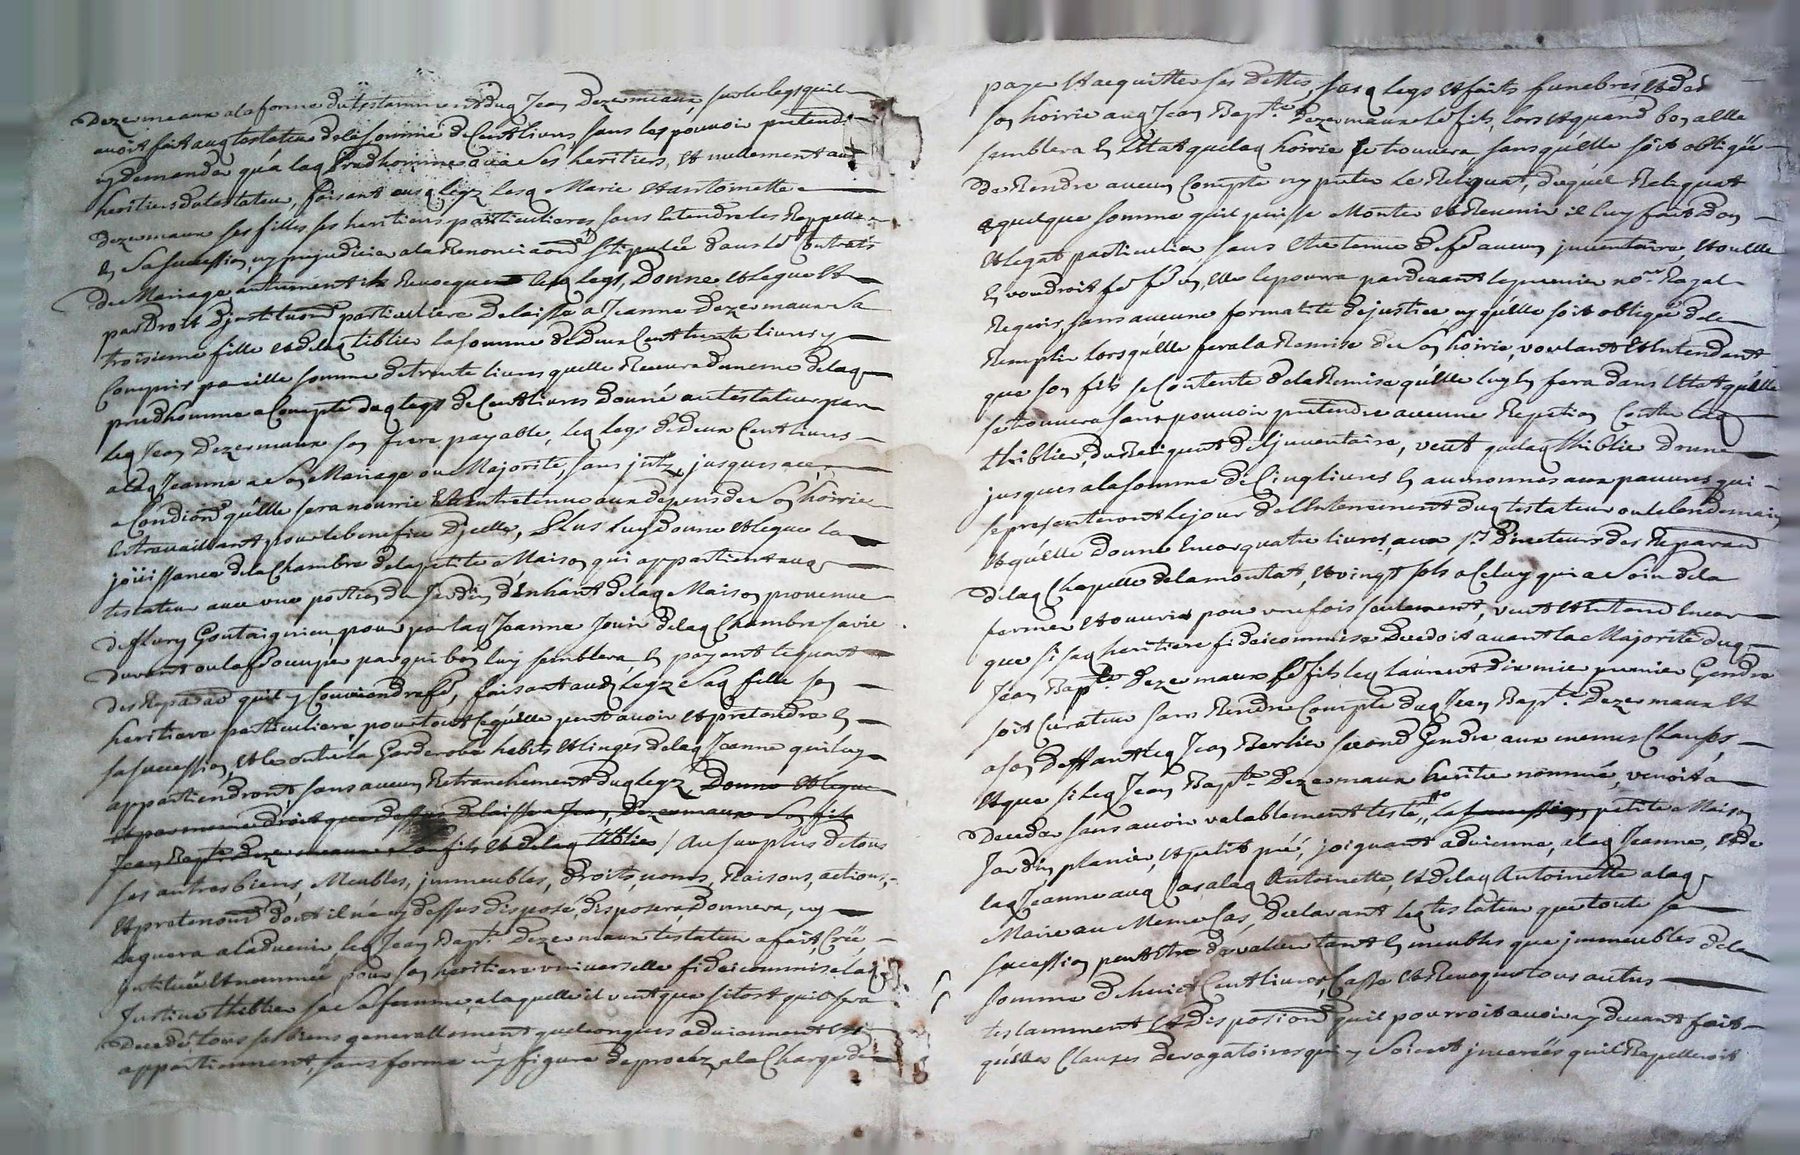 Dezermaux a la forme du testamment dud Jean Dezermaux, sur le legs quil
avoit fait aud testateur de la somme de Cent livres sans les pouvoir pretendre
ny demander qu'a laq prudhomme ou a ses heritiers, et nullement aux
heritiers du testateur, faisant ausq legz lesq Marie et antoinette
Dezermaux ses filles, ses heritieres particulieres sans Entendre les Rappeller
En sa succession, ny prejudicier a la Renonciaon stipulée dans le Contrats
De Mariage autrement il Revoque les legs, Donne et legue et
par Droit d'justituon particuliere Delaisse a Jeanne Dezermaux sa
troisieme fille et de laq tiblier la somme de Deux Cent trente livres y
Compris pareille somme de trente livres quelle Recevra de laq
prudhomme a Compte duq legs de Cent livres donné au testateur par
leq Jean Dezermaux son frere payable, leq legs de Deux Cent livres
a laq Jeanne a son Mariage ou Majorité, sans jusques a ce,
a Condion qu'elle sera nourrie Et Entretenue aux depens de son hoirie
En travaillant pour le benefice d'jcelle, Plus luy donne et legue la
joüissance de la Chambre de la petite Maison qui appartient aud
testateur avec une portion de Jardin de laq Maison provenue
de fleury Goutaignieu, pour par laq Jeanne Jouir de laq Chambre sa vie
Durant ou la fe occuper par qui bon luy semblera En payant le quart
des Reparaon quil y Conviendra fe, faisant audt legz saq fille son
heritiere particuliere, pour tout Ce qu'elle peut avoir et pretendre En
sa succession, et le outre la Garderobe habits et linges de laq Jeanne qui luy
appartiendront, sans aucun Retranchement duq legz, Donne et legue
et par meme droit que dessus delaisse a Jean Dezermaux son fils
Jean Bapte Dezermaux son fils et de laq tiblier / Au surplus de tous
ses autres biens, Meubles, jmmeubles, droits, noms, Raisons, actions,
et pretenons dont il n'a cy dessus disposé, disposera, donnera, ny
leguera a l'advenir leq Jean Bapt. Dezermaux testateur a fait, Créé
jnstitué et nommée pour son heritiere universelle fideicommise laq
Justine thiblier sa femme, a laquelle il veut que sitost quil sera
Decedé tous ses biens generallement quelconques adviennent et
appartiennent, sans forme ny figure de procez, a la Charge de
payer et acquitter ses dettes, susq legs et faits funebres, et de
son hoirie auq Jean Bapte Dezermaux le fils, lors et quand bon elle
semblera En l'Etat que laq hoirie se trouvera sans qu'elle soit obligée
De Rendre aucun Compte ny preter le Reliquat, duquel Reliquat
a quelque somme quil puisse Monter et Revenir il luy fait don
et legat particulier sans Etre tenue de fe aucun jnventaire, et ou elle
En voudroit fe fe un, elle le pourra pardevant le premier nore Royal
Requis, sans aucune formalité de justice ny qu'elle soit obligée de le
Remplir lorsqu'elle fera la Remise de son hoirie, voulant et Entendant
que son fils se Contente de la Remise qu'elle luy En fera dans l'Etat qu'elle
se trouvera sans pouvoir pretendre aucune Repetion Contre laq
thiblier, du Reliquat de l'jnventaire, veut que laq thiblier donne
jusques a la somme de Cinq livres En aumonnes aux pauvres qui
se presenteront le jour de l'Enterrement duq testateur ou le lendemain
et qu'elle donne Encor quatre livres aux srs Directeurs des Reparaon
de laq Chapelle de lamontat, et vingt sols a Celuy qui a soin de la
fermer et ouvrir pour une fois seulement, veut et Entend Encor
que si saq heritiere fideicommise Decedoit avant la Majorité duq
Jean Bapte Dezermaux le fils leq laurent Dixmier premier Gendre
soit Curateur sans Rendre Compte duq Jean Bapt. Dezermaux et
a son deffaut leq Jean Berlier second Gendre aux memes Clauses,
et que si leq Jean Bapte Dezermaux heritier nommé, venoit a
Deceder sans avoir valablement testé, la succession petite Maison
Jardin, planier, et petit pré, joignant advienne, a laq Jeanne, et de
laq Jeanne auq Cas a laq Antoinette, et de laq Antoinette a laq
Marie au Meme Cas, Declarant leq testateur que toute sa
sucession peut Etre de valeur tant En meubles que jmmeubles de la
somme de huict Cent livres, Casse et Revoque tous autres
testamment et disposions quil pourroit avoir cy devant fait
qu'elles Clauses derogatoires qui y soient jnserées quil Rapelleroit